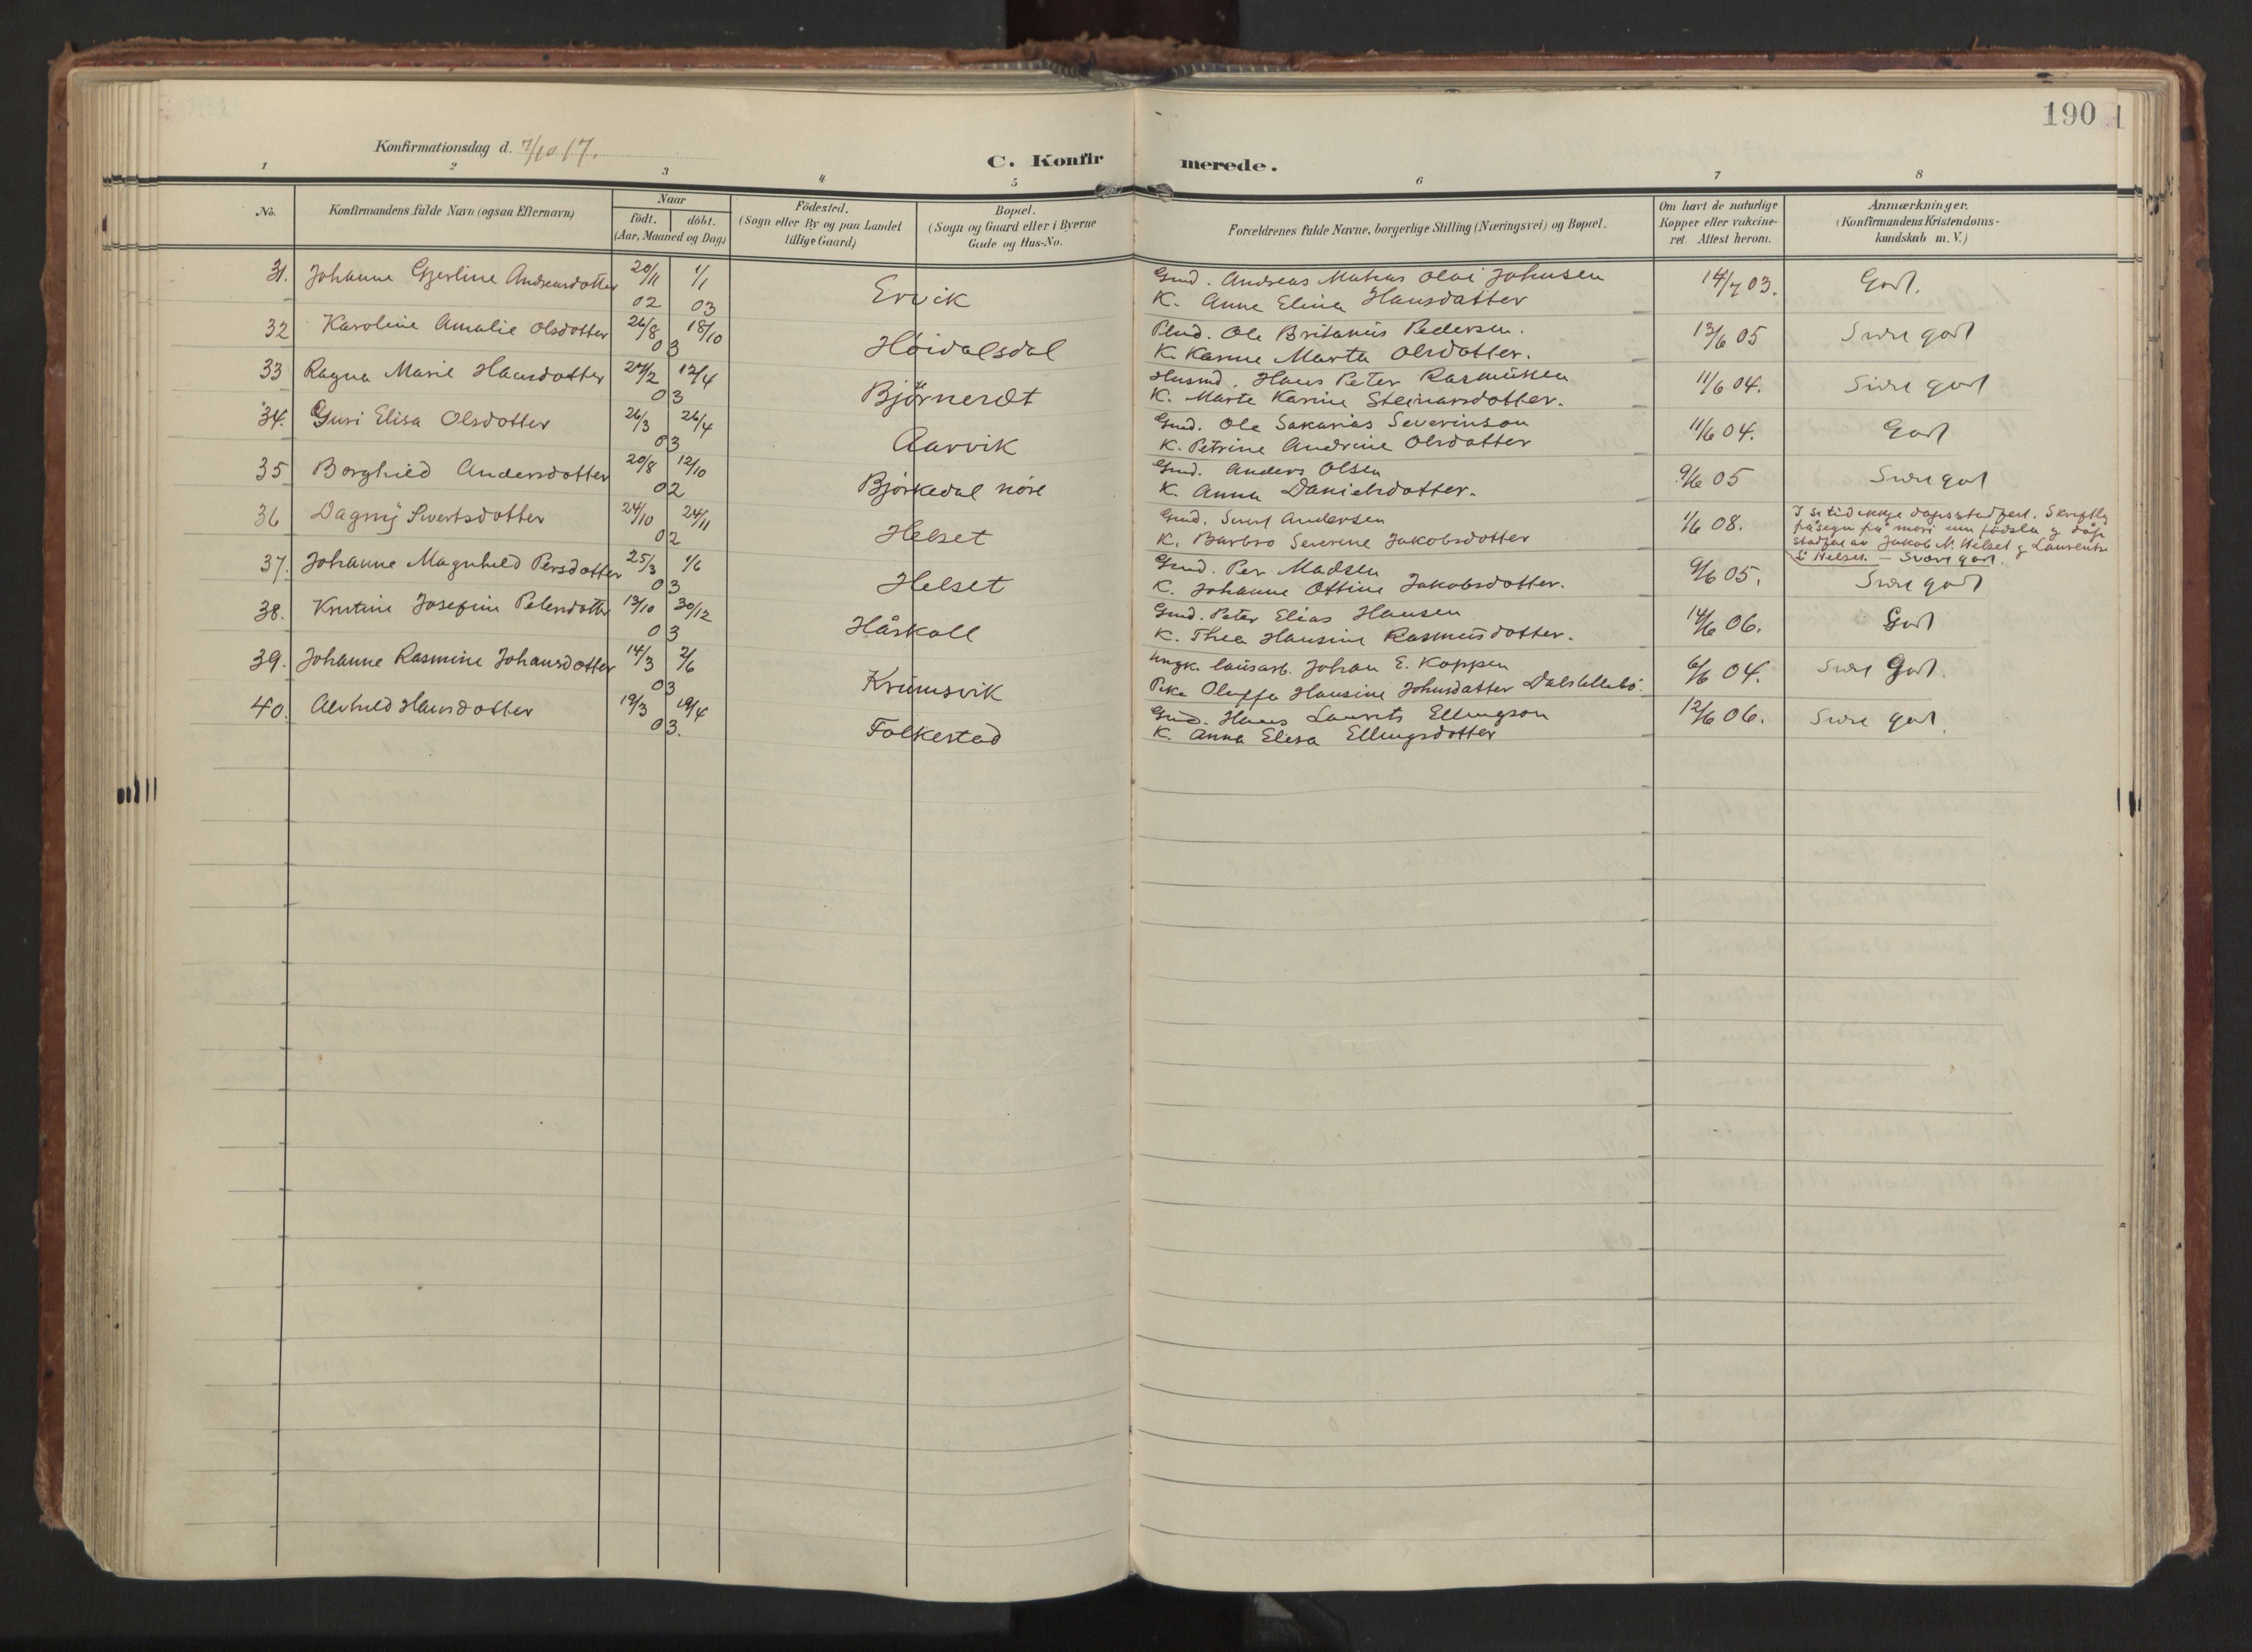 190
Konfirmationsdag d. 7/10 17.
C. Konfirmerede.
1 2 3 4 5 6 7 8
No. Konfirmandens fulde Navn (ogsaa Efternavn) Naar födt. döbt. (Aar, Maaned og Dag) Födested. (Sogn eller By og paa Landet tillige Gaard) Bopæl. (Sogn og Gaard eller i Byerne Gade og Hus-No. Forældrenes fulde Navne, borgerlige Stilling (Næringsvei) og Bopæl. Om havt de naturlige Kopper eller vakcineret. Attest herom. Anmærkninger. (Konfirmandens Kristendomskundskab m. V.)
31. Johanne Gjerline Andreasdotter 20/11 02 1/1 03 Ervik Gmd. Andreas Olai Johnsen 14/7 03. Godt.
K. Anne Elina Hansdatter
32 Karoline Amalie Olsdotter 26/8 18/10 03 Høidalsdal Ole Britanus Pedersen. 13/6 05 Svært godt
K. Karine Marta Olsdotter.
33 Ragna Marie Hansdotter 12/4 03 Husmd. Hans Peter Rasmussen 11/6 04. Svært godt
K. Marte Karine Steinarsdotter.
34. Guri Elisa Olsdotter 26/3 26/4 03 Aarvik Gmd. Ole Sakarias Severinson 11/6 04. Godt
K. Petrine Andrine Olsdatter
35 Borghild Andersdotter 20/8 12/10 02 Bjørkedal nöre Gmd. Anders Olsen 9/6 05 Svært godt
K. Anna Danielsdotter.
36 Dagny Sivertsdotter 24/10 24/11 02 Helset Gmd. Sivert Andersen 1/6 08.
K. Barbro Severine Jakobsdotter
av Jakob N. Helset
Helset. — Svært godt.
37. Johanne Magnhild Persdotter 25/3 1/6 03 Helset Gmd. Per Madsen 9/6 05. Svært godt
K. Johanne Ottine Jakobsdotter.
38. Kristine Josefine Petersdotter 13/10 30/12 03 Håskoll Gmd. Peter Elias Hansen 14/6 06. Godt
K. Thea Hansine Rasmusdotter.
39. Johanne Rasmine Johansdotter 14/3 2/6 03 Krumsvik Ungk. lausarb. Johan E. Koppen 6/6 04. Svært Godt.
Pike Oluffa Hansine Johnsdatter
40. Alvhild Hansdotter 19/3 19/4 03. Folkestad Gmd. Hans Laurits Ellingson 12/6 06. Svært godt.
K. Anna Elisa Ellingsdotter